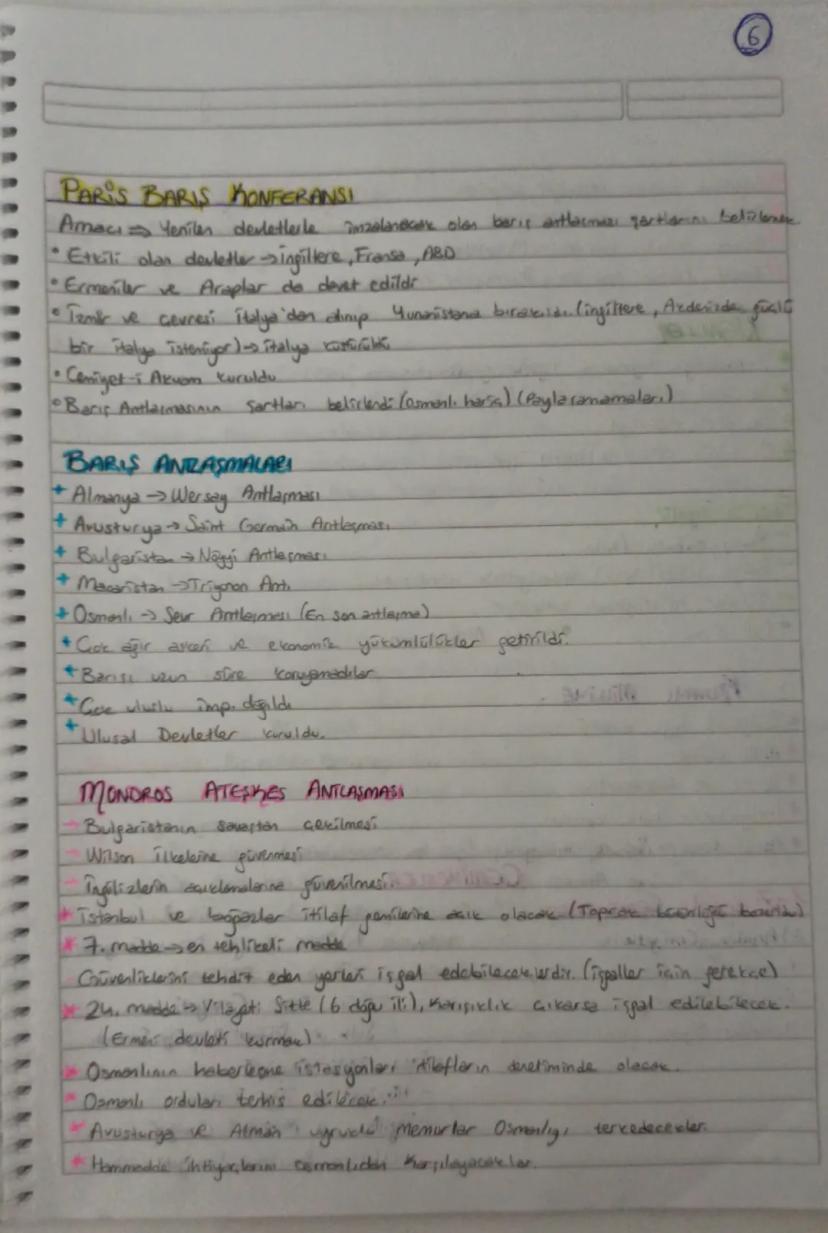 6
PARİS BARIŞ KONFERANSI
Amacı ⇒ Yenilen devletlerle imzalanacak olan barış antlaşması şartlarını belirlemek
• Etkili olan devletler → İngiltere, Fransa, ABD
• Ermeniler ve Araplar da davet edildi
• İzmir ve çevresi İtalya'dan alınıp Yunanistana bırakıldı. (İngiltere, Akdenizde güçlü
bir italya istemiyor) → italya küstürüldü
• Cemiyet-i Akvam kuruldu
• Barış Antlaşmasının şartları belirlendi (Osmanlı hariç) (Paylaşamamaları)
BARIŞ ANTLAŞMALARI
+ Almanya → Wersay Antlaşması
+ Avusturya → Saint Germain Antlaşması
+ Bulgaristan → Nöyyi Antlaşması
+ Macaristan → Triyanon Ant.
+ Osmanlı → Sevr Antlaşması (En son antlaşma)
+ Çok ağır askeri ve ekonomik yükümlülükler getirildi.
+ Barışı uzun süre koruyamadılar
+ Çok uluslu imp. dağıldı
+ Ulusal Devletler kuruldu.
MONDROS ATEŞKES ANTLAŞMASI
→ Bulgaristanın savaştan çekilmesi
→ Wilson ilkelerine güvenmesi
→ İngilizlerin açıklamalarına güvenilmesi
* İstanbul ve boğazlar itilaf gemilerine açık olacak (Toprak bütünlüğü bozuldu)
* 7. madde → en tehlikeli madde
Güvenliklerini tehdit eden yerleri işgal edebileceklerdir. (işgaller için gerekçe)
* 24. madde → Vilayeti Sitte (6 doğu ili), karışıklık çıkarsa işgal edilebilecek.
(Ermeni devleti kurmak)
* Osmanlının haberleşme istasyonları itilafların denetiminde olacak.
* Osmanlı orduları terhis edilecek.
* Avusturya ve Alman uyruklu memurlar Osmanlıyı terkedecekler.
* Hammadde ihtiyaçlarını osmanlıdan karşılayacaklar.